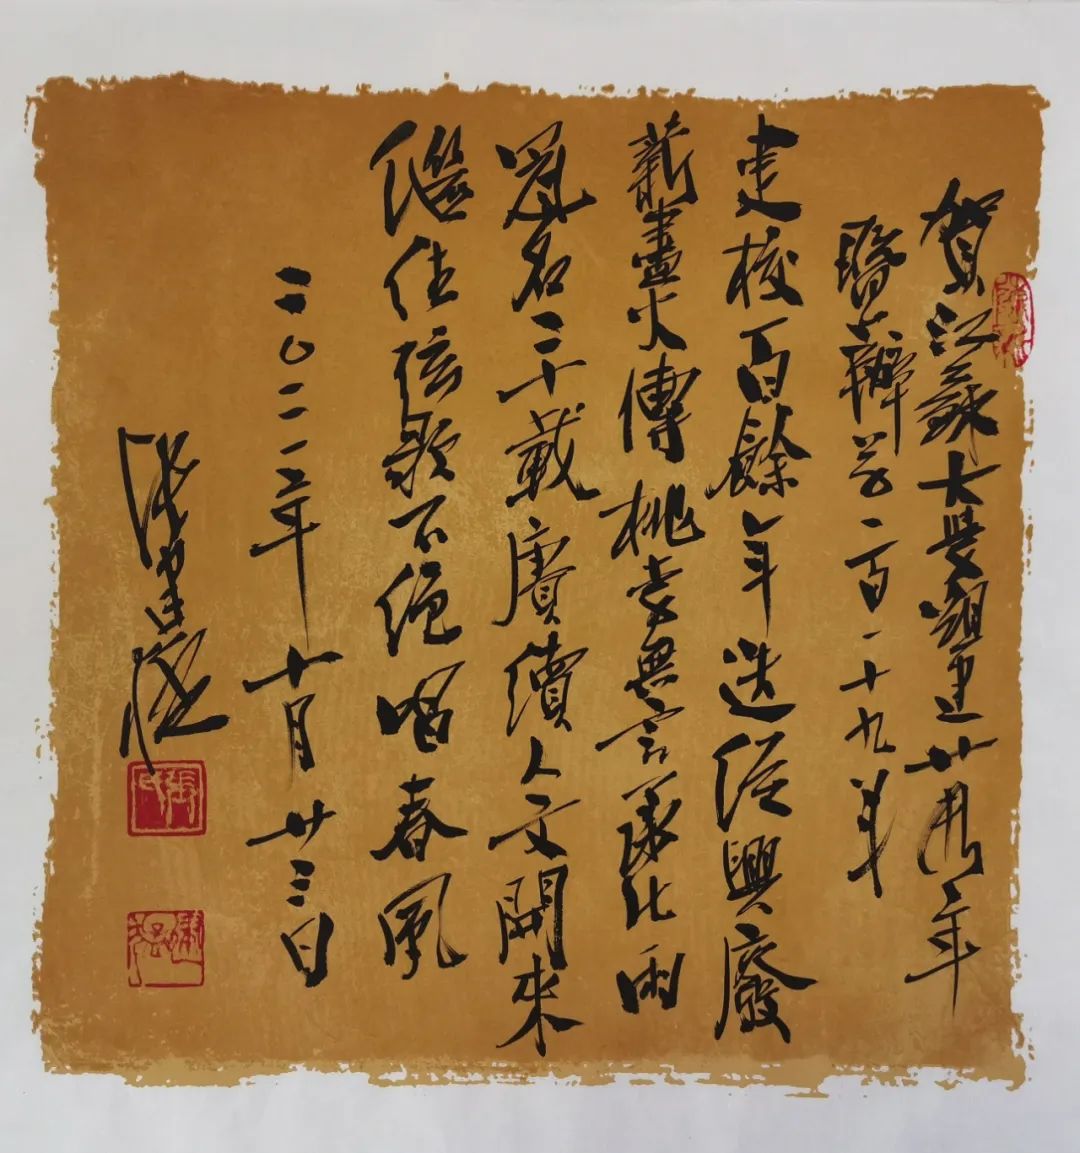 賀江蘇大學組建廿周年
暨辦學一百一十九年
建校百餘年迭經興廢
薪盡火傳桃李無言承化雨
冠名二十載賡續人文開來
繼往弦歌不絕唱春風
二〇二一年十月廿三日
張
張氏